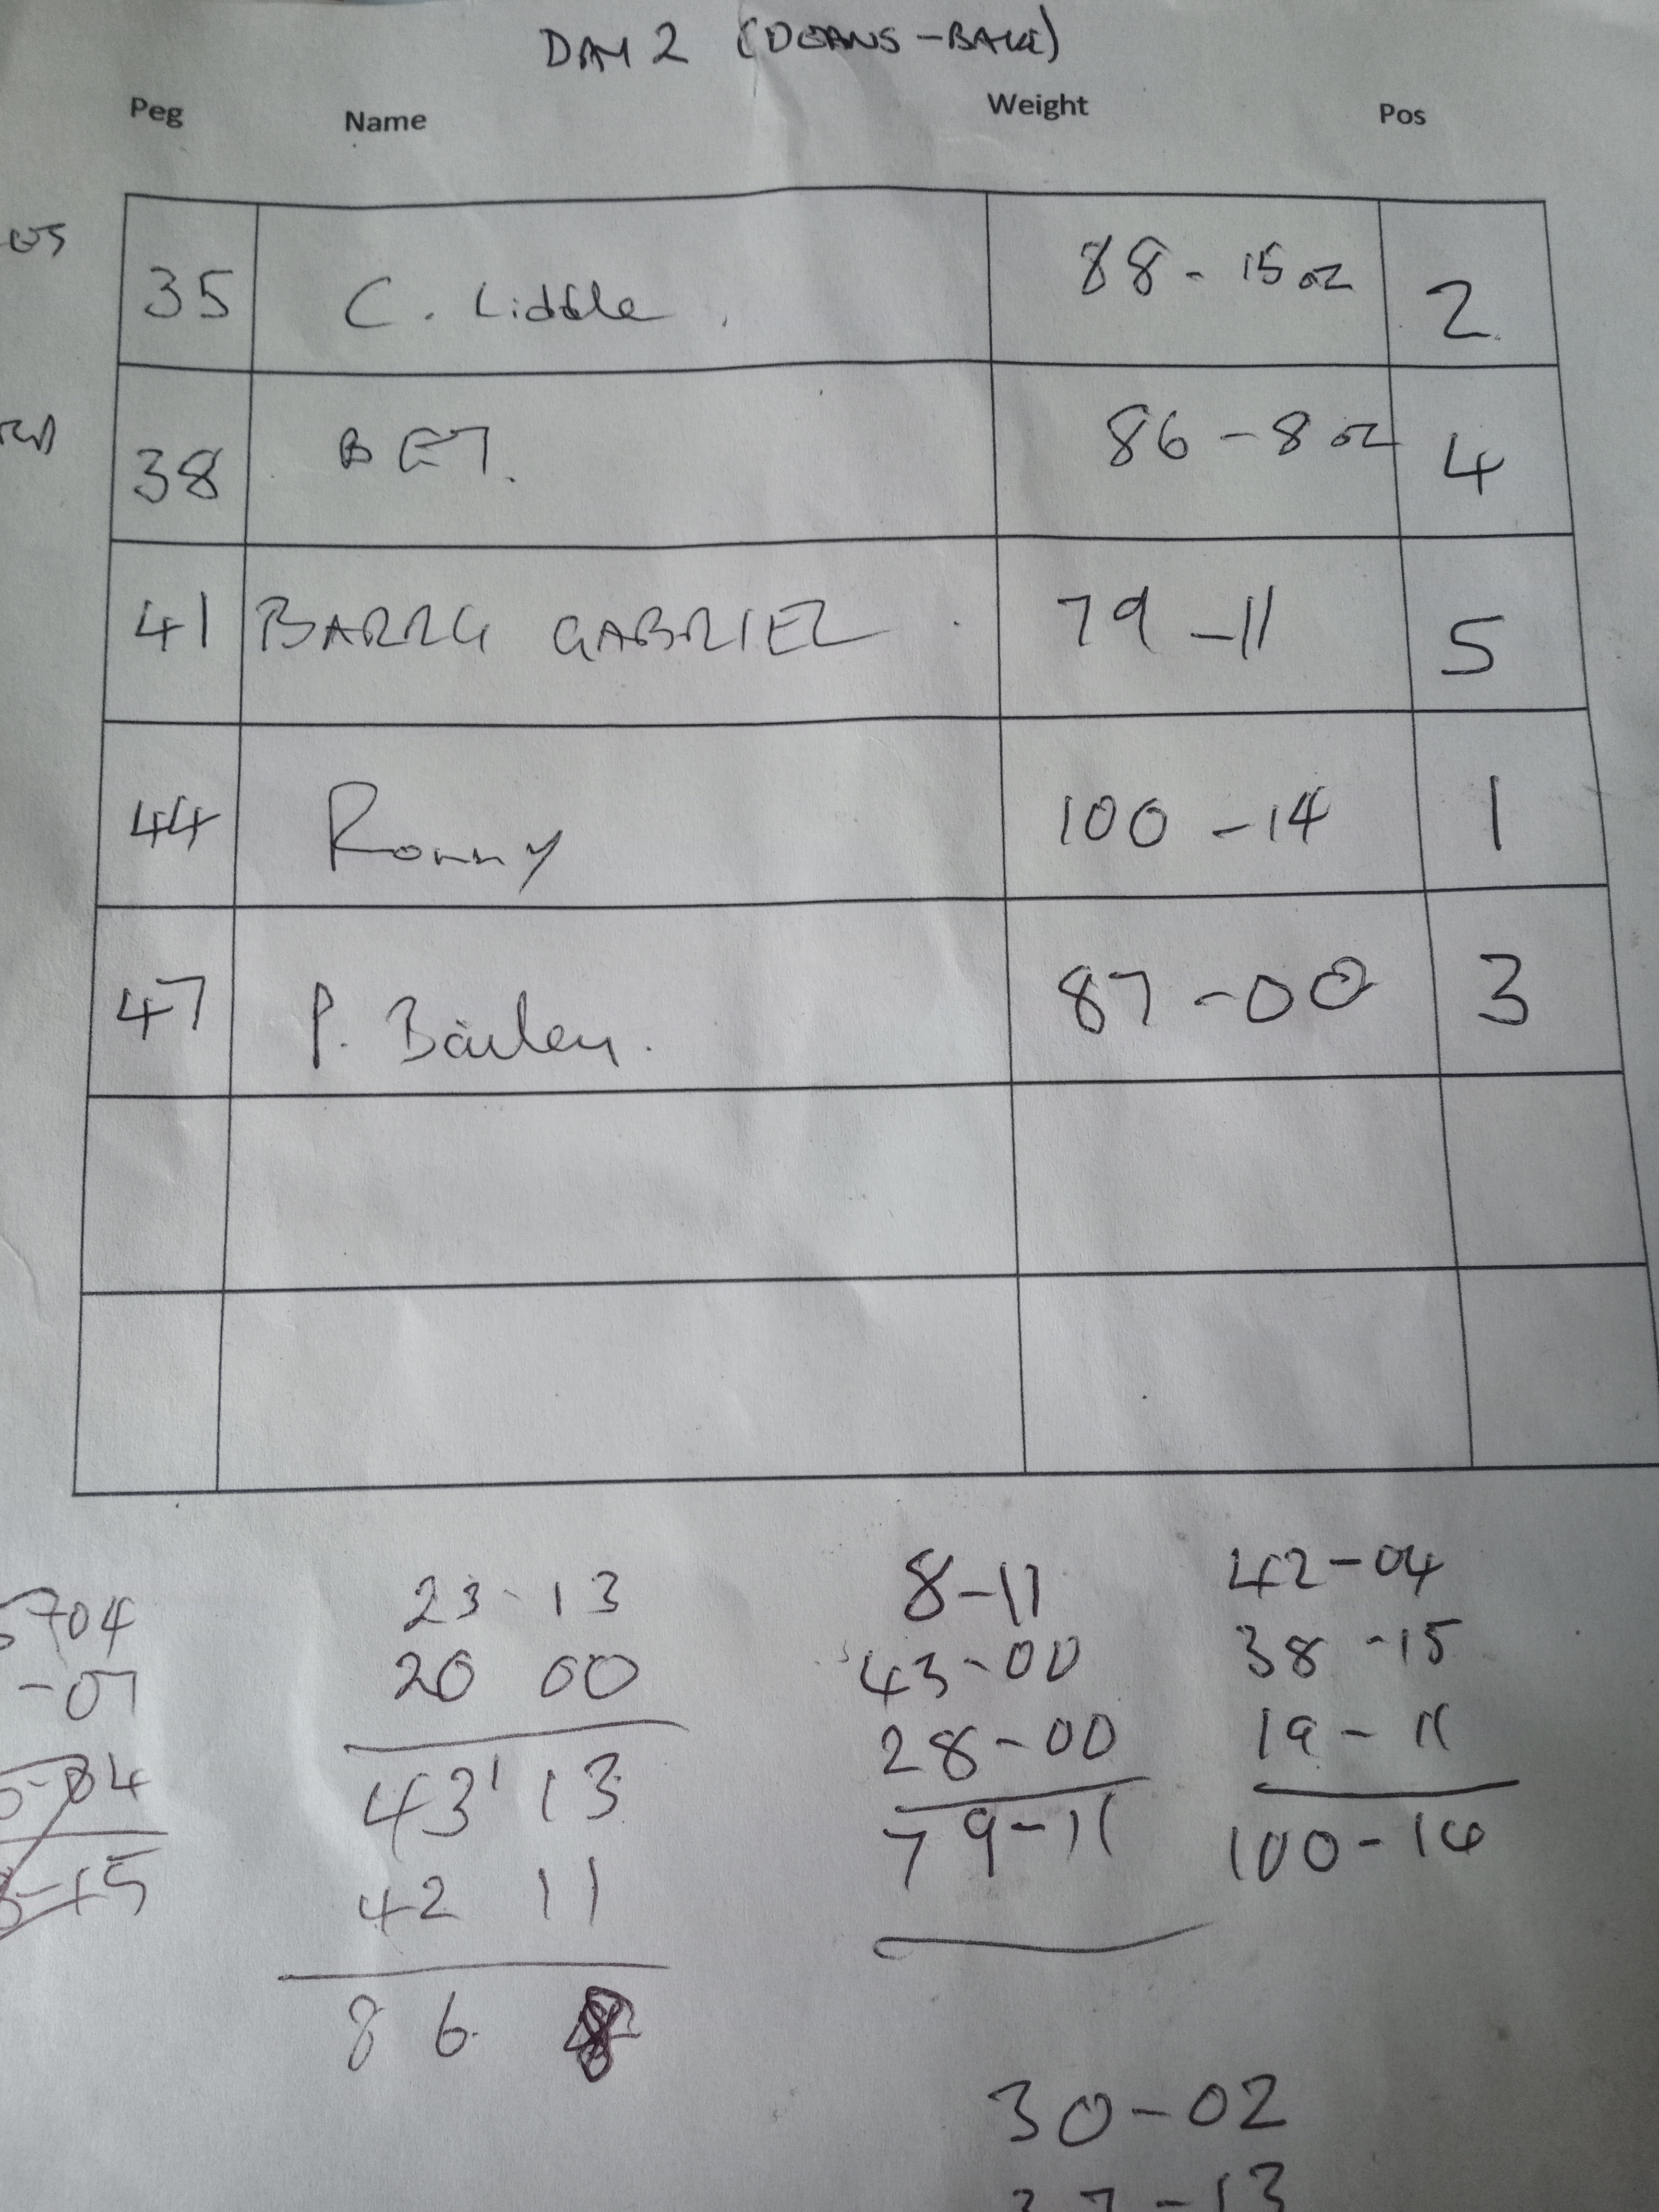 DAY 2 (DEANS-BANK)
Peg Name Weight Pos
35 C. Liddle. 88 - 15 oz 2
38 BET. 86 - 8 oz 4
41 BARRY GABRIEL 79 - 11 5
44 Ronny 100 - 14 1
47 P. Bailey. 87 - 00 3
23 - 13
20 00
43 13
42 11
86 8
8 - 11
43 - 00
28 - 00
79 - 11
42 - 04
38 - 15
19 - 11
100 - 14
30 - 02
37 - 13